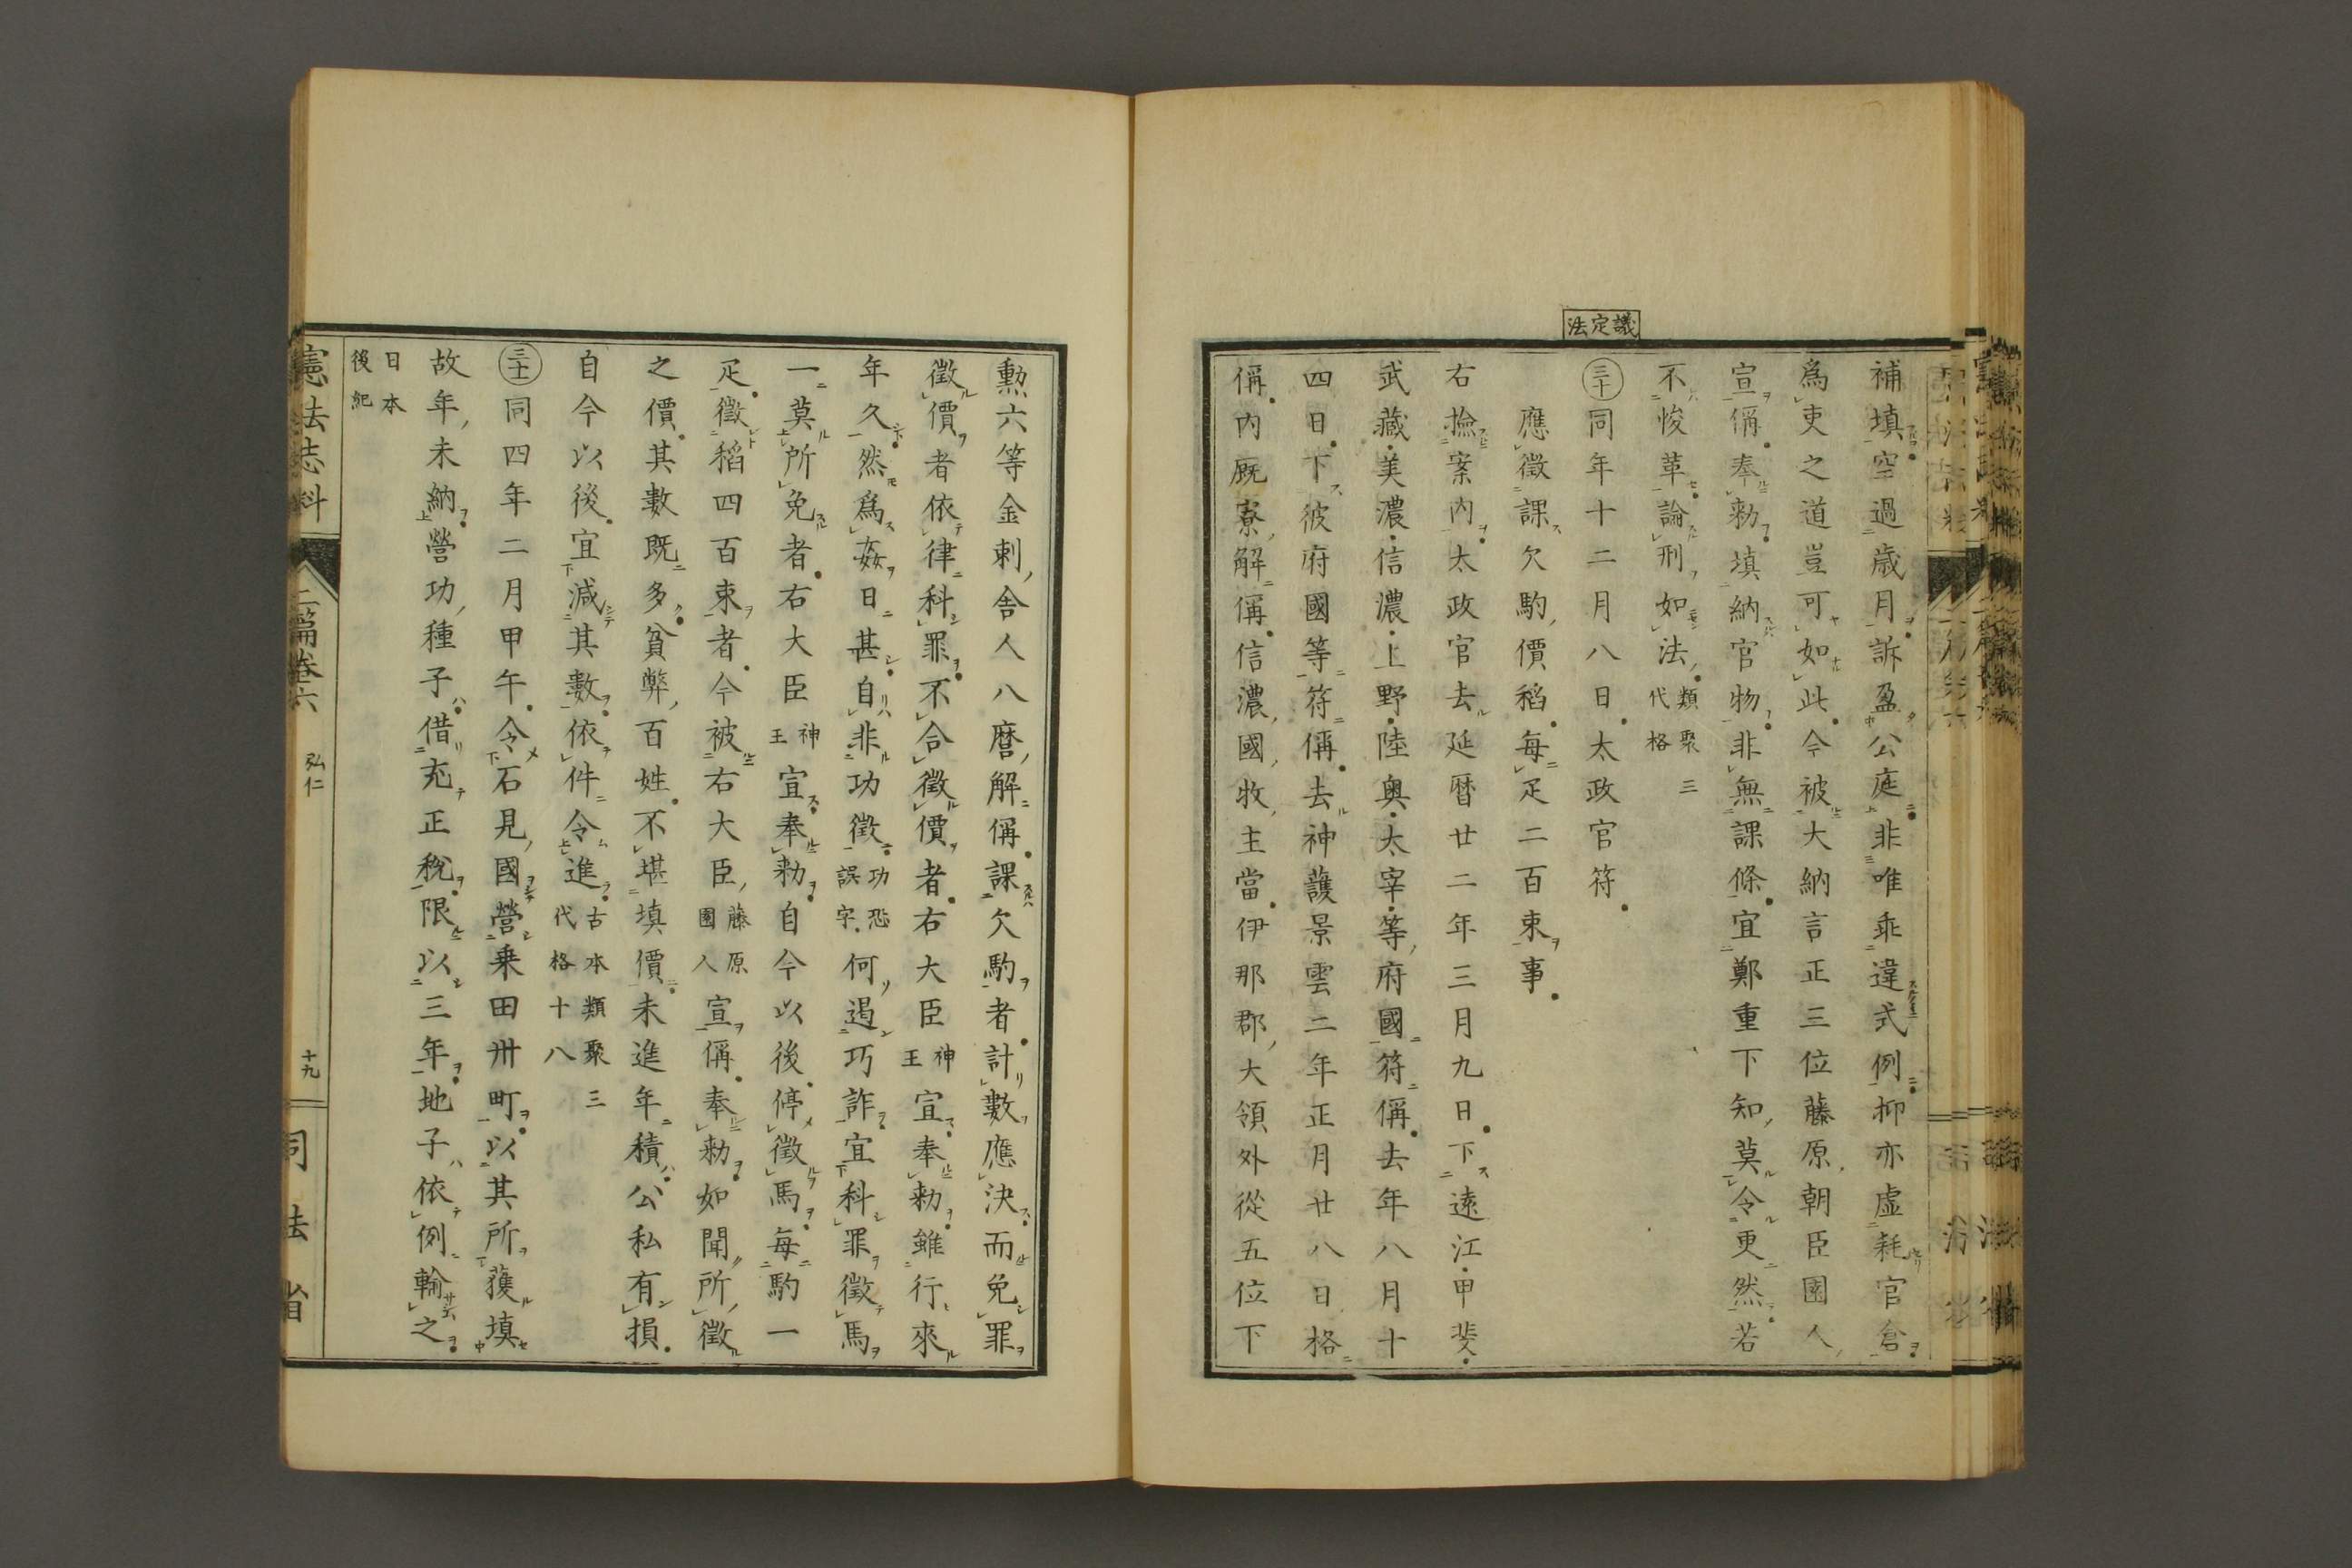 議定法
補填空過歳月訴盈公庭非唯乖違式例抑亦虚耗官倉
爲吏之道豈可如此今被大納言正三位藤原朝臣園人
宣偁奉勅填納官物非無課條宜鄭重下知莫令更然若
不悛革論刑如法類聚三代格
三十同年十二月八日太政官符
應徵課欠駒價稻毎疋二百束事
右撿案内太政官去延暦廿二年三月九日下遠江甲斐
武藏美濃信濃上野陸奥太宰等府國符偁去年八月十
四日下彼府國等符偁去神護景雲二年正月廿八日格
偁内厩寮解偁信濃國牧主當伊那郡大領外從五位下
勲六等金刺舎人八麿解偁課欠駒者計數應決而免罪
徵價者依律科罪不合徵價者右大臣神王宣奉勅雖行來
年久然爲姦日甚自非功徵功恐誤字何遏巧詐宜科罪徵馬
一莫所免者右大臣神王宣奉勅自今以後停徵馬毎駒一
疋徵稻四百束者今被右大臣藤原園人宣偁奉勅如聞所徵
之價其數既多貧弊百姓不堪填價未進年積公私有損
自今以後宜減其數依件令進古本類聚三代格十八
三十一同四年二月甲午令石見國營乗田卅町以其所獲填
故年未納營功種子借充正税限以三年地子依例輸之
日本後紀
憲法志料
二篇卷六
弘仁
十九
司法省